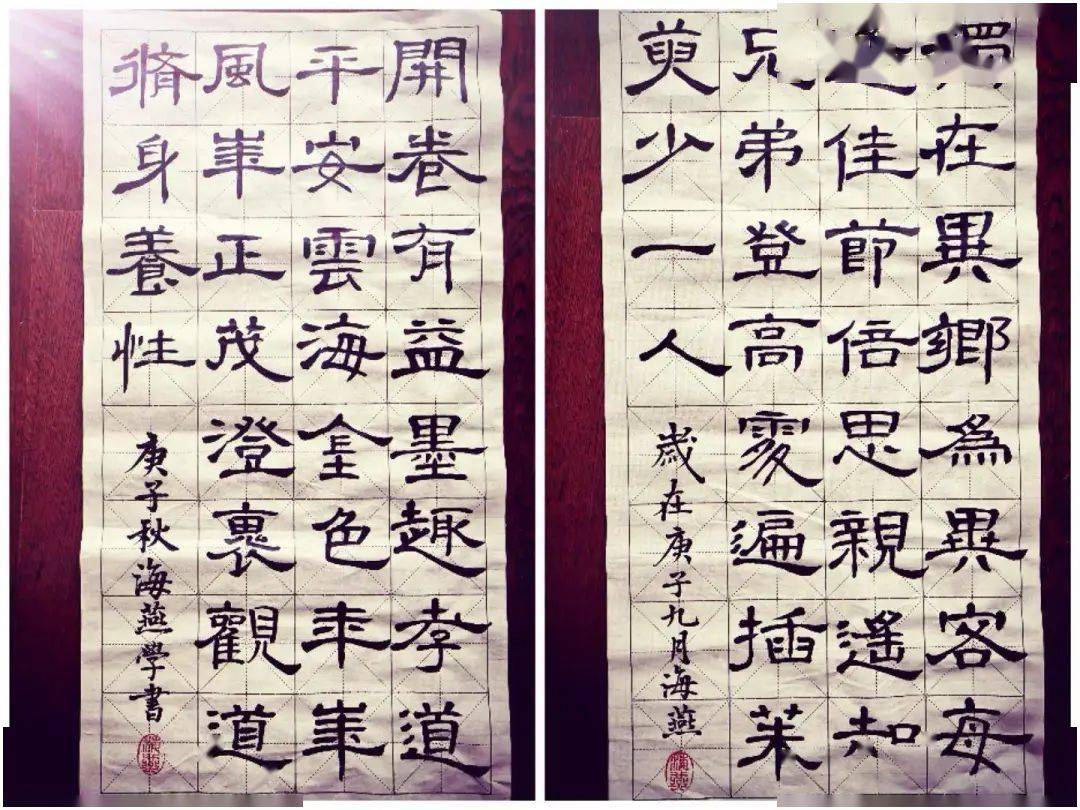 開卷有益墨趣孝道
平安雲海金色年華
風華正茂澄褱觀道
脩身養性
庚子秋海燕學書
獨在異鄉為異客每
佳節倍思親遙知
兄弟登高處遍插茱
萸少一人
歲在庚子九月海燕